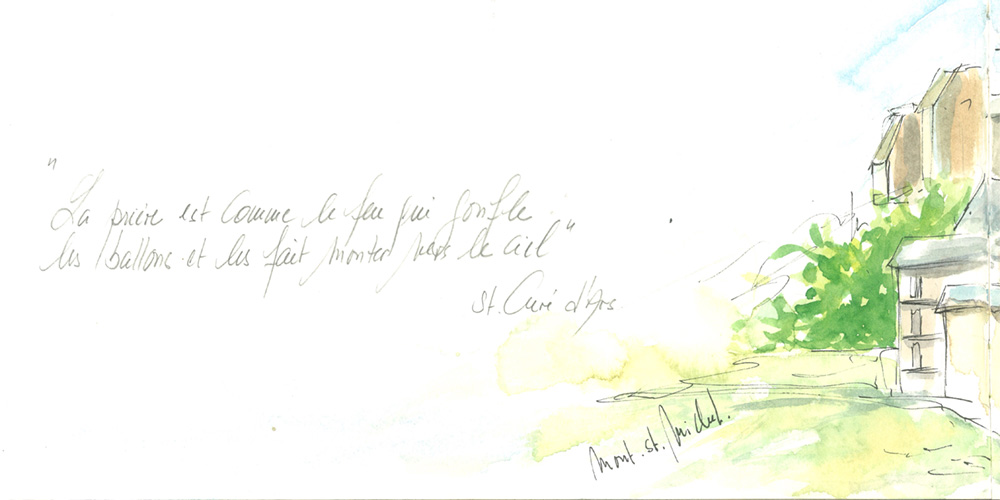 "La prière est comme le feu qui gonfle
les ballons et les fait monter vers le ciel"
St. Curé d'Ars
Mont. St. Michel.